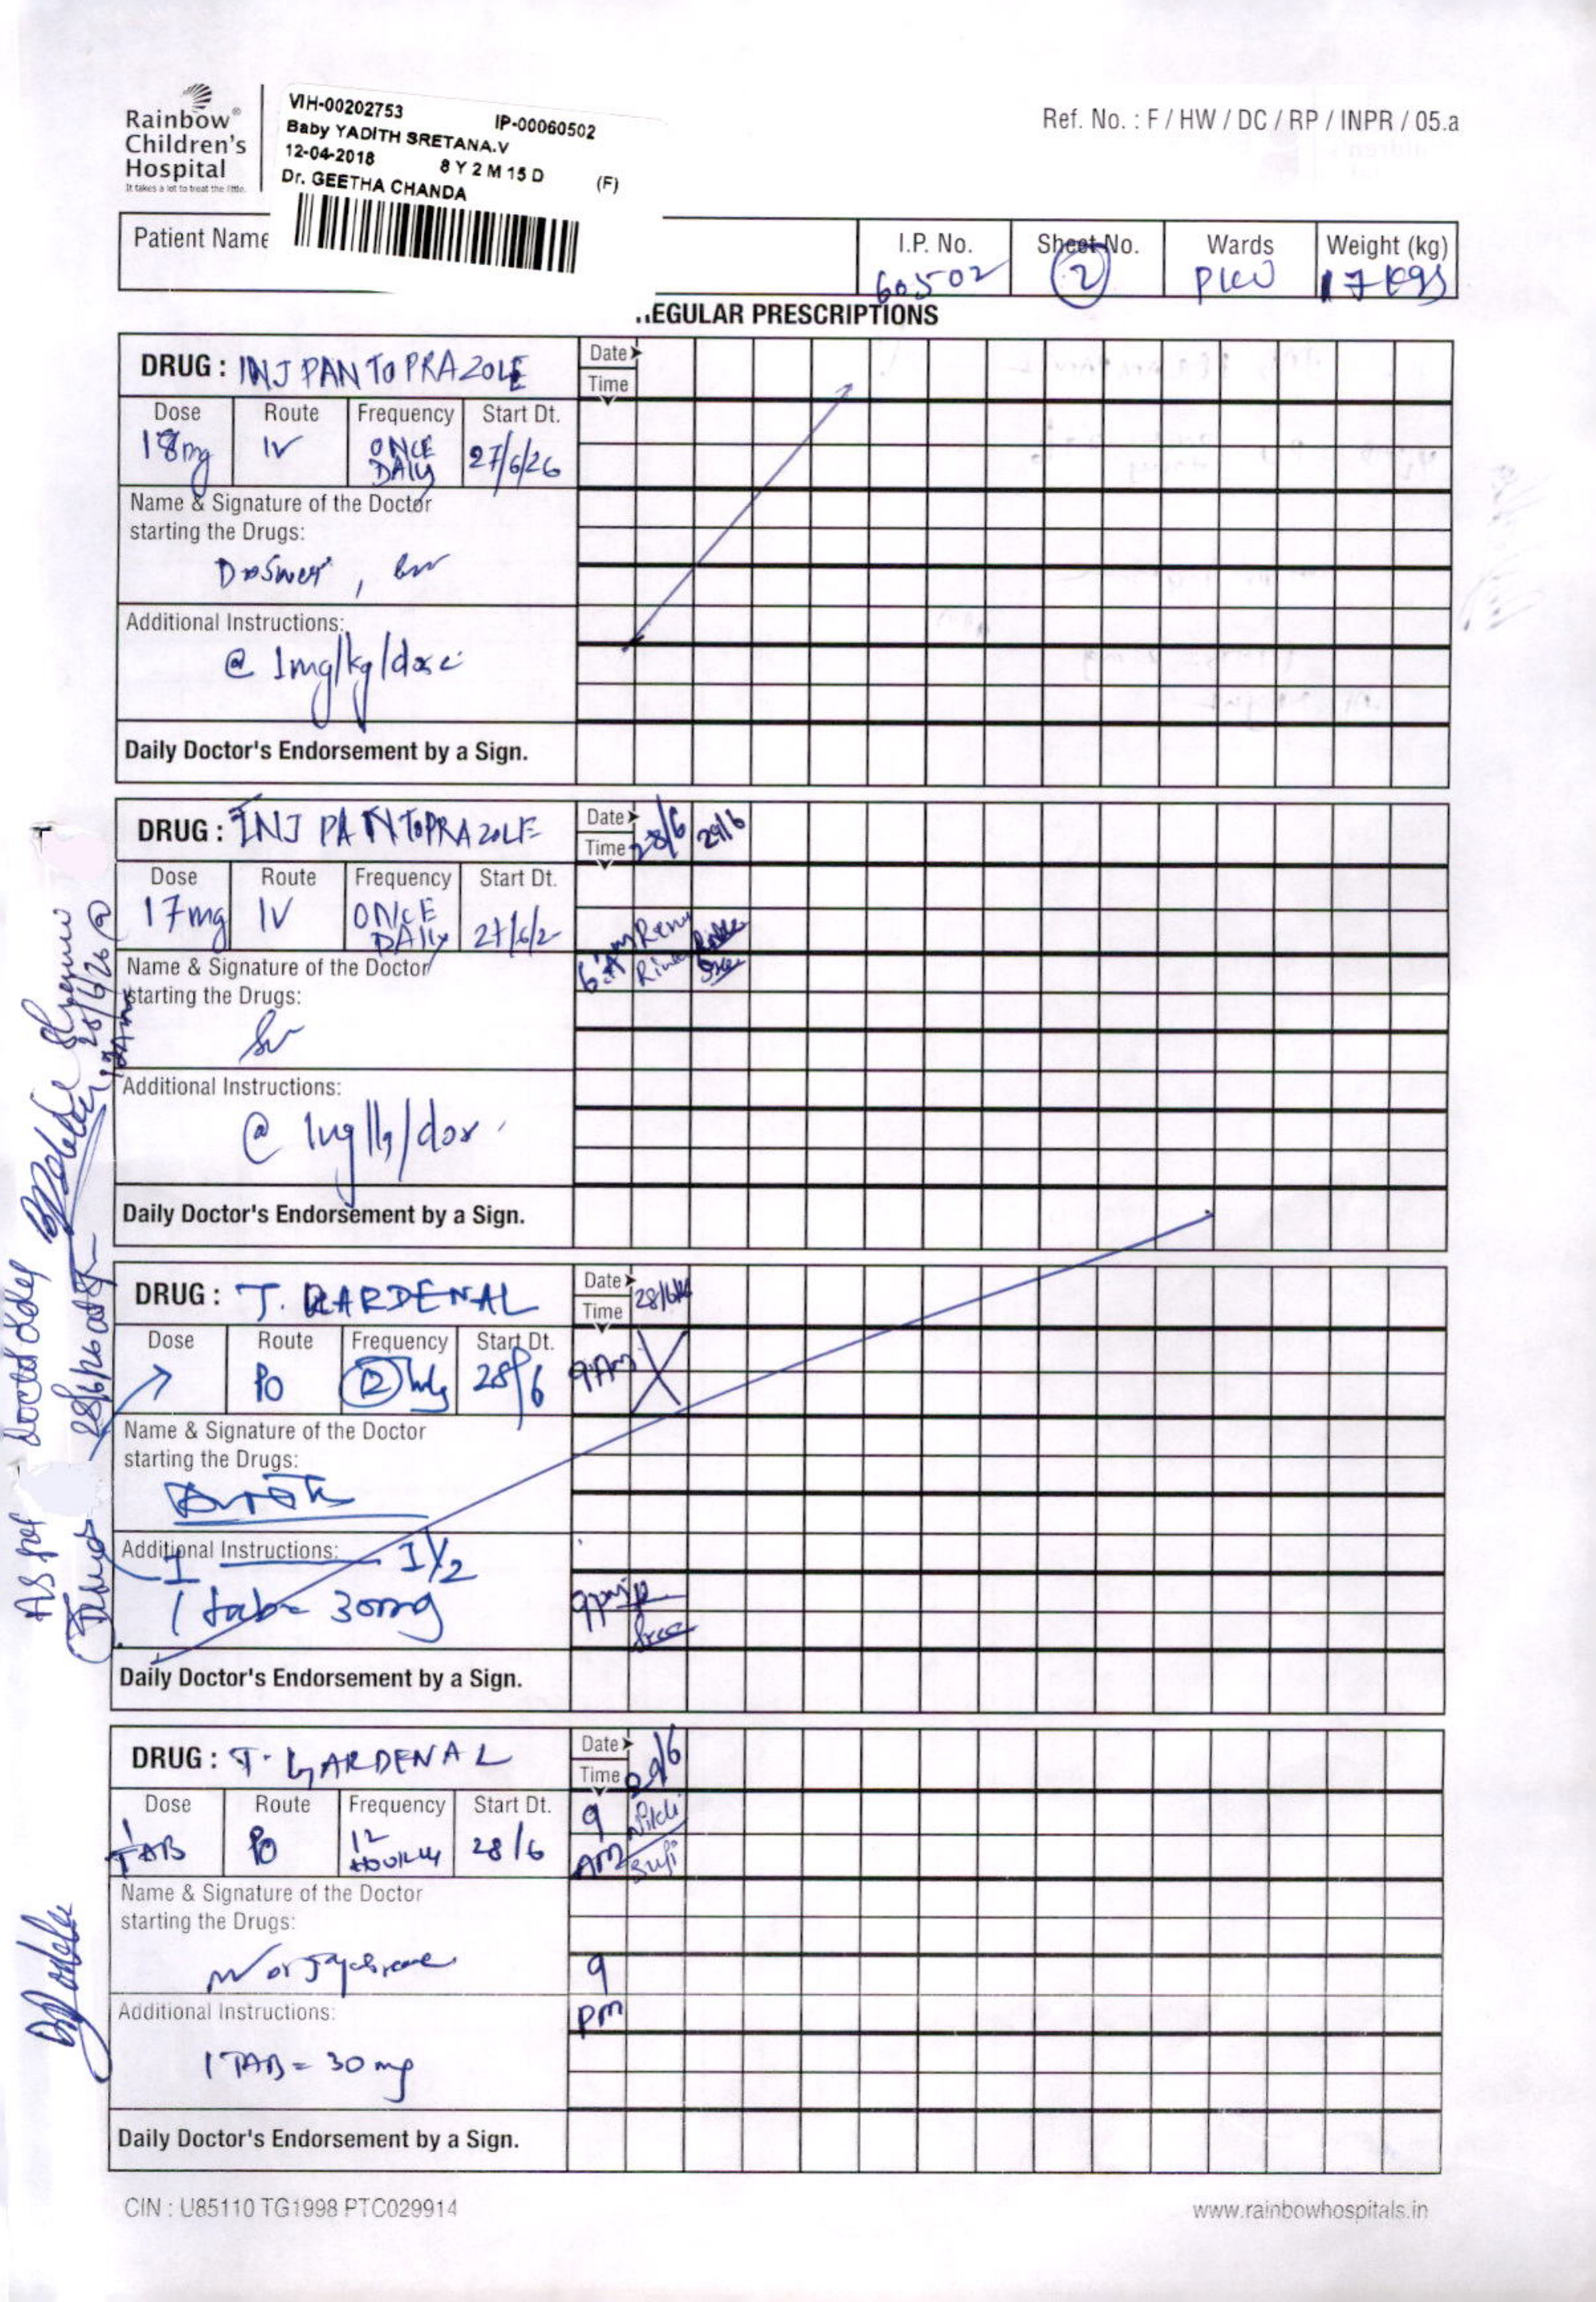 Rainbow®
Children's
Hospital
It takes a lot to treat the little.
VIH-00202753 IP-00060502
Baby YADITH SRETANA.V
12-04-2018 8 Y 2 M 15 D (F)
Dr. GEETHA CHANDA
Ref. No. : F / HW / DC / RP / INPR / 05.a
Patient Name
I.P. No. 60502
Sheet No. 2
Wards
Weight (kg) 17 kgs
EGULAR PRESCRIPTIONS
DRUG : INJ PANTOPRAZOLE
Date
Time
Dose Route Frequency Start Dt.
18mg IV ONCE DAILY 27/6/26
Name & Signature of the Doctor
starting the Drugs:
Additional Instructions:
@ 1mg/kg/dose
Daily Doctor's Endorsement by a Sign.
DRUG : INJ PANTOPRAZOLE
Date 28/6 29/6
Time
Dose Route Frequency Start Dt.
17mg IV ONCE DAILY 27/6/2
6 AM
Name & Signature of the Doctor
starting the Drugs:
Additional Instructions:
@ 1mg/kg/dose
Daily Doctor's Endorsement by a Sign.
DRUG : T. GARDENAL
Date 28/6/26
Time
Dose Route Frequency Start Dt.
PO 12 hrly 28/6
9 AM
Name & Signature of the Doctor
starting the Drugs:
Additional Instructions:
1 1/2
1 tab = 30mg
9pm
Daily Doctor's Endorsement by a Sign.
As per doctor
28/6/26
DRUG : T. GARDENAL
Date 29/6
Time
Dose Route Frequency Start Dt.
1 TAB PO 12 HOURLY 28/6
9 AM
Name & Signature of the Doctor
starting the Drugs:
9 pm
Additional Instructions:
1 TAB = 30 mg
Daily Doctor's Endorsement by a Sign.
CIN : U85110 TG1998 PTC029914
www.rainbowhospitals.in